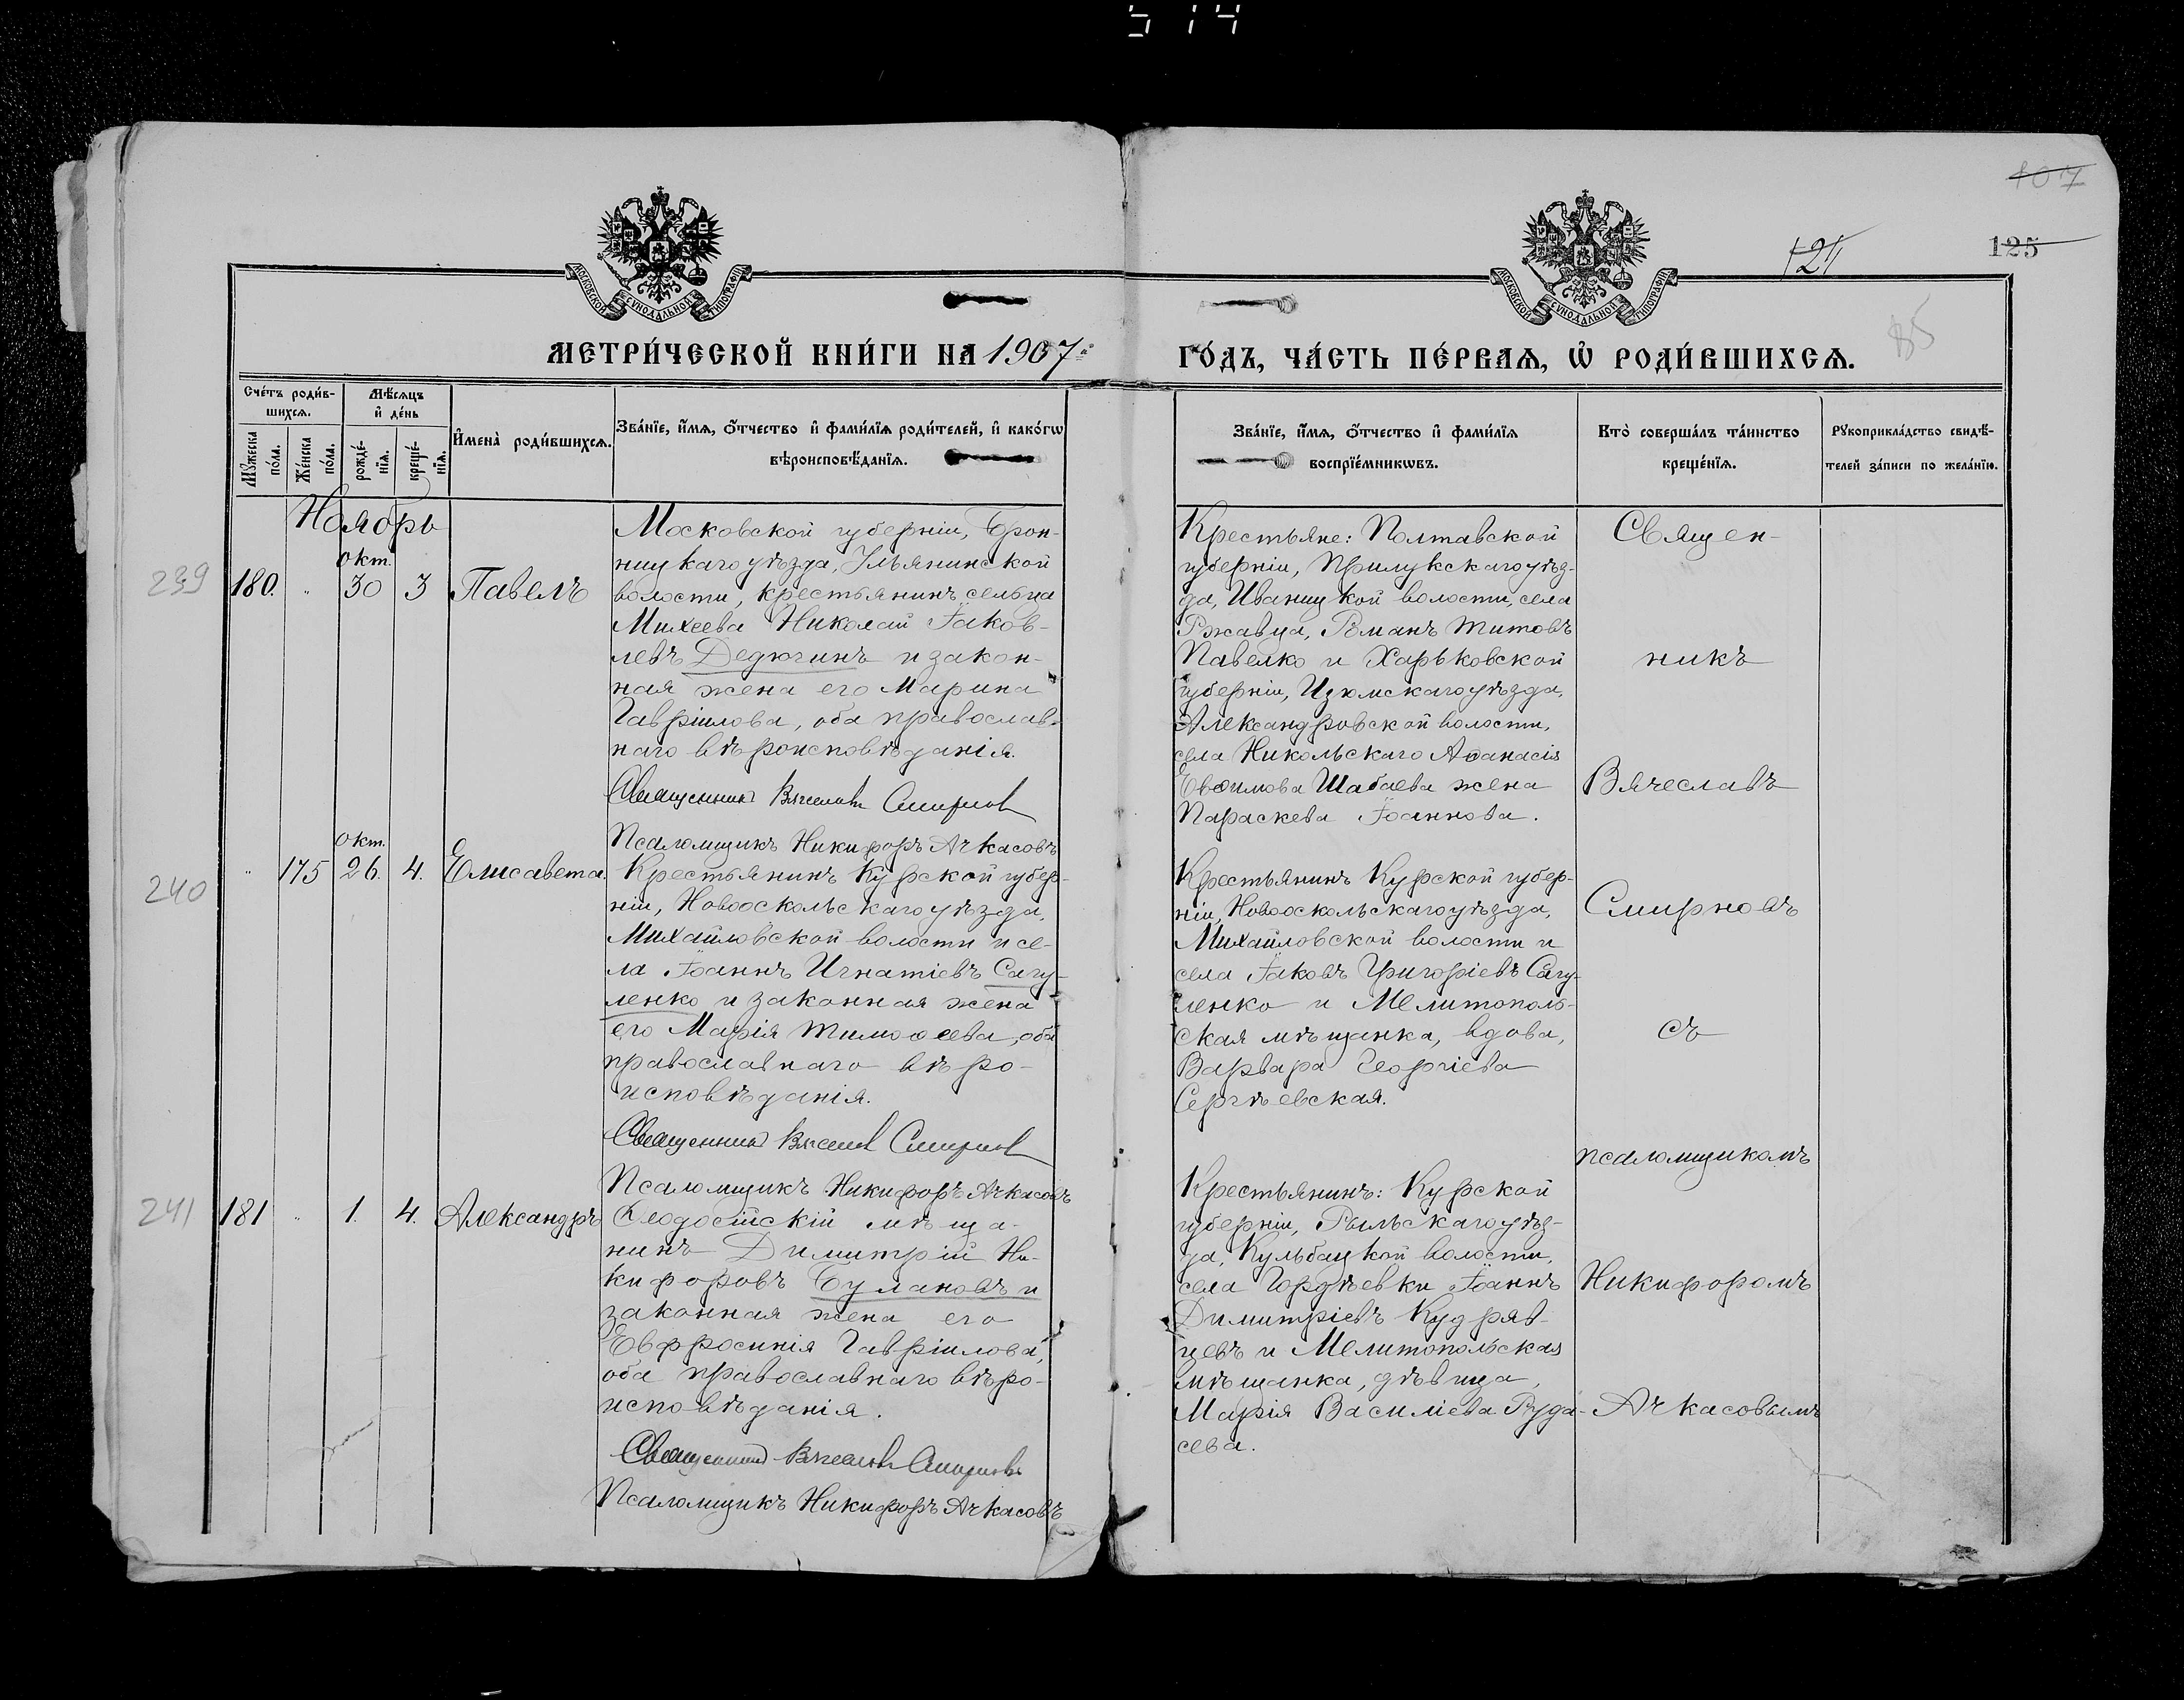 514
107
125
121
85
МОСКОВСКОЙ СѴНОДАЛЬНОЙ ТИПОГРАФІИ
МОСКОВСКОЙ СѴНОДАЛЬНОЙ ТИПОГРАФІИ
МЕТРИ́ЧЕСКОЙ КНИ́ГИ НА 1907й
ГО́ДЪ, ЧА́СТЬ ПЕ́РВАѦ, Ѡ҆ РОДИ́ВШИХСѦ.
Сче́тъ роди́в-
шихсѧ.
Мѣ́сѧцъ
и҆ де́нь
Мꙋ́жеска по́ла.
Же́нска по́ла.
рожде́-нїѧ.
креще́-нїѧ.
И҆мена̀ роди́вшихсѧ.
Зва́нїе, и҆́мѧ, ѻ҆́тчество и҆ фами́лїѧ роди́телей, и҆ како́гѡ
вѣроисповѣ́данїѧ.
Зва́нїе, и҆́мѧ, ѻ҆́тчество и҆ фами́лїѧ
воспрїе́мникѡвъ.
Кто̀ соверша́лъ та́инство
креще́нїѧ.
Рꙋкоприкла́дство свидѣ́-
телей за́писи по жела́нїю.
Ноябрь
239
180. " окт. 30 3 Павелъ
Московской губерніи, Брон-
ницкаго уѣзда, Ульянинской
волости, крестьянинъ сельца
Михеева Николай Іаков-
левъ Дедюгинъ и закон-
ная жена его Марина
Гавріилова, оба православ-
наго вѣроисповѣданія.
Священникъ Вячеславъ Смирновъ
Псаломщикъ Никифоръ Ачкасовъ
Крестьяне: Полтавской
губерніи, Прилукскаго уѣз-
да, Иваницкой волости, села
Ржавца, Романъ Титовъ
Павелко и Харьковской
губерніи, Изюмскаго уѣзда,
Александровской волости,
села Никольскаго Аѳанасія
Евѳимова Шабаева жена
Параскева Іоаннова.
240
" 175 окт. 26. 4. Елисавета.
Крестьянинъ Курской губер-
ніи, Новооскольскаго уѣзда,
Михайловской волости и се-
ла Іоаннъ Игнатіевъ Сагу-
ленко и законная жена
его Марія Тимоѳеева, оба
православнаго вѣро-
исповѣданія.
Священникъ Вячеславъ Смирновъ
Псаломщикъ Никифоръ Ачкасовъ
Крестьянинъ Курской губер-
ніи, Новооскольскаго уѣзда,
Михайловской волости и
села Іаковъ Григоріевъ Сагу-
ленко и Мелитополь-
ская мѣщанка, вдова,
Варвара Георгіева
Сергѣевская.
241
181 " 1. 4. Александръ
Ѳеодосійскій мѣща-
нинъ Димитрій Ни-
кифоровъ Булановъ и
законная жена его
Евфросинія Гавріилова,
оба православнаго вѣро-
исповѣданія.
Священникъ Вячеславъ Смирновъ
Псаломщикъ Никифоръ Ачкасовъ
Крестьянинъ: Курской
губерніи, Рыльскаго уѣз-
да, Кульбацкой волости,
села Гордѣевки Іоаннъ
Димитріевъ Кудряв-
цевъ и Мелитопольская
мѣщанка, дѣвица,
Марія Василіева Руда-
сева.
Священ-
никъ
Вячеславъ
Смирновъ
съ
псаломщикомъ
Никифоромъ
Ачкасовымъ